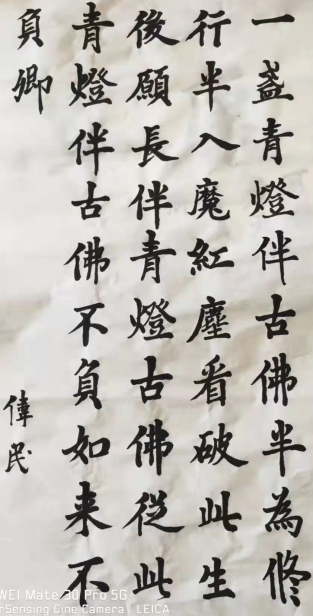 一盏青燈伴古佛半為修
行半入魔紅塵看破此生
後願長伴青燈古佛從此
青燈伴古佛不負如来不
負卿
偉民
WEI Mate 30 Pro 5G
rSensing Cine Camera | LEICA